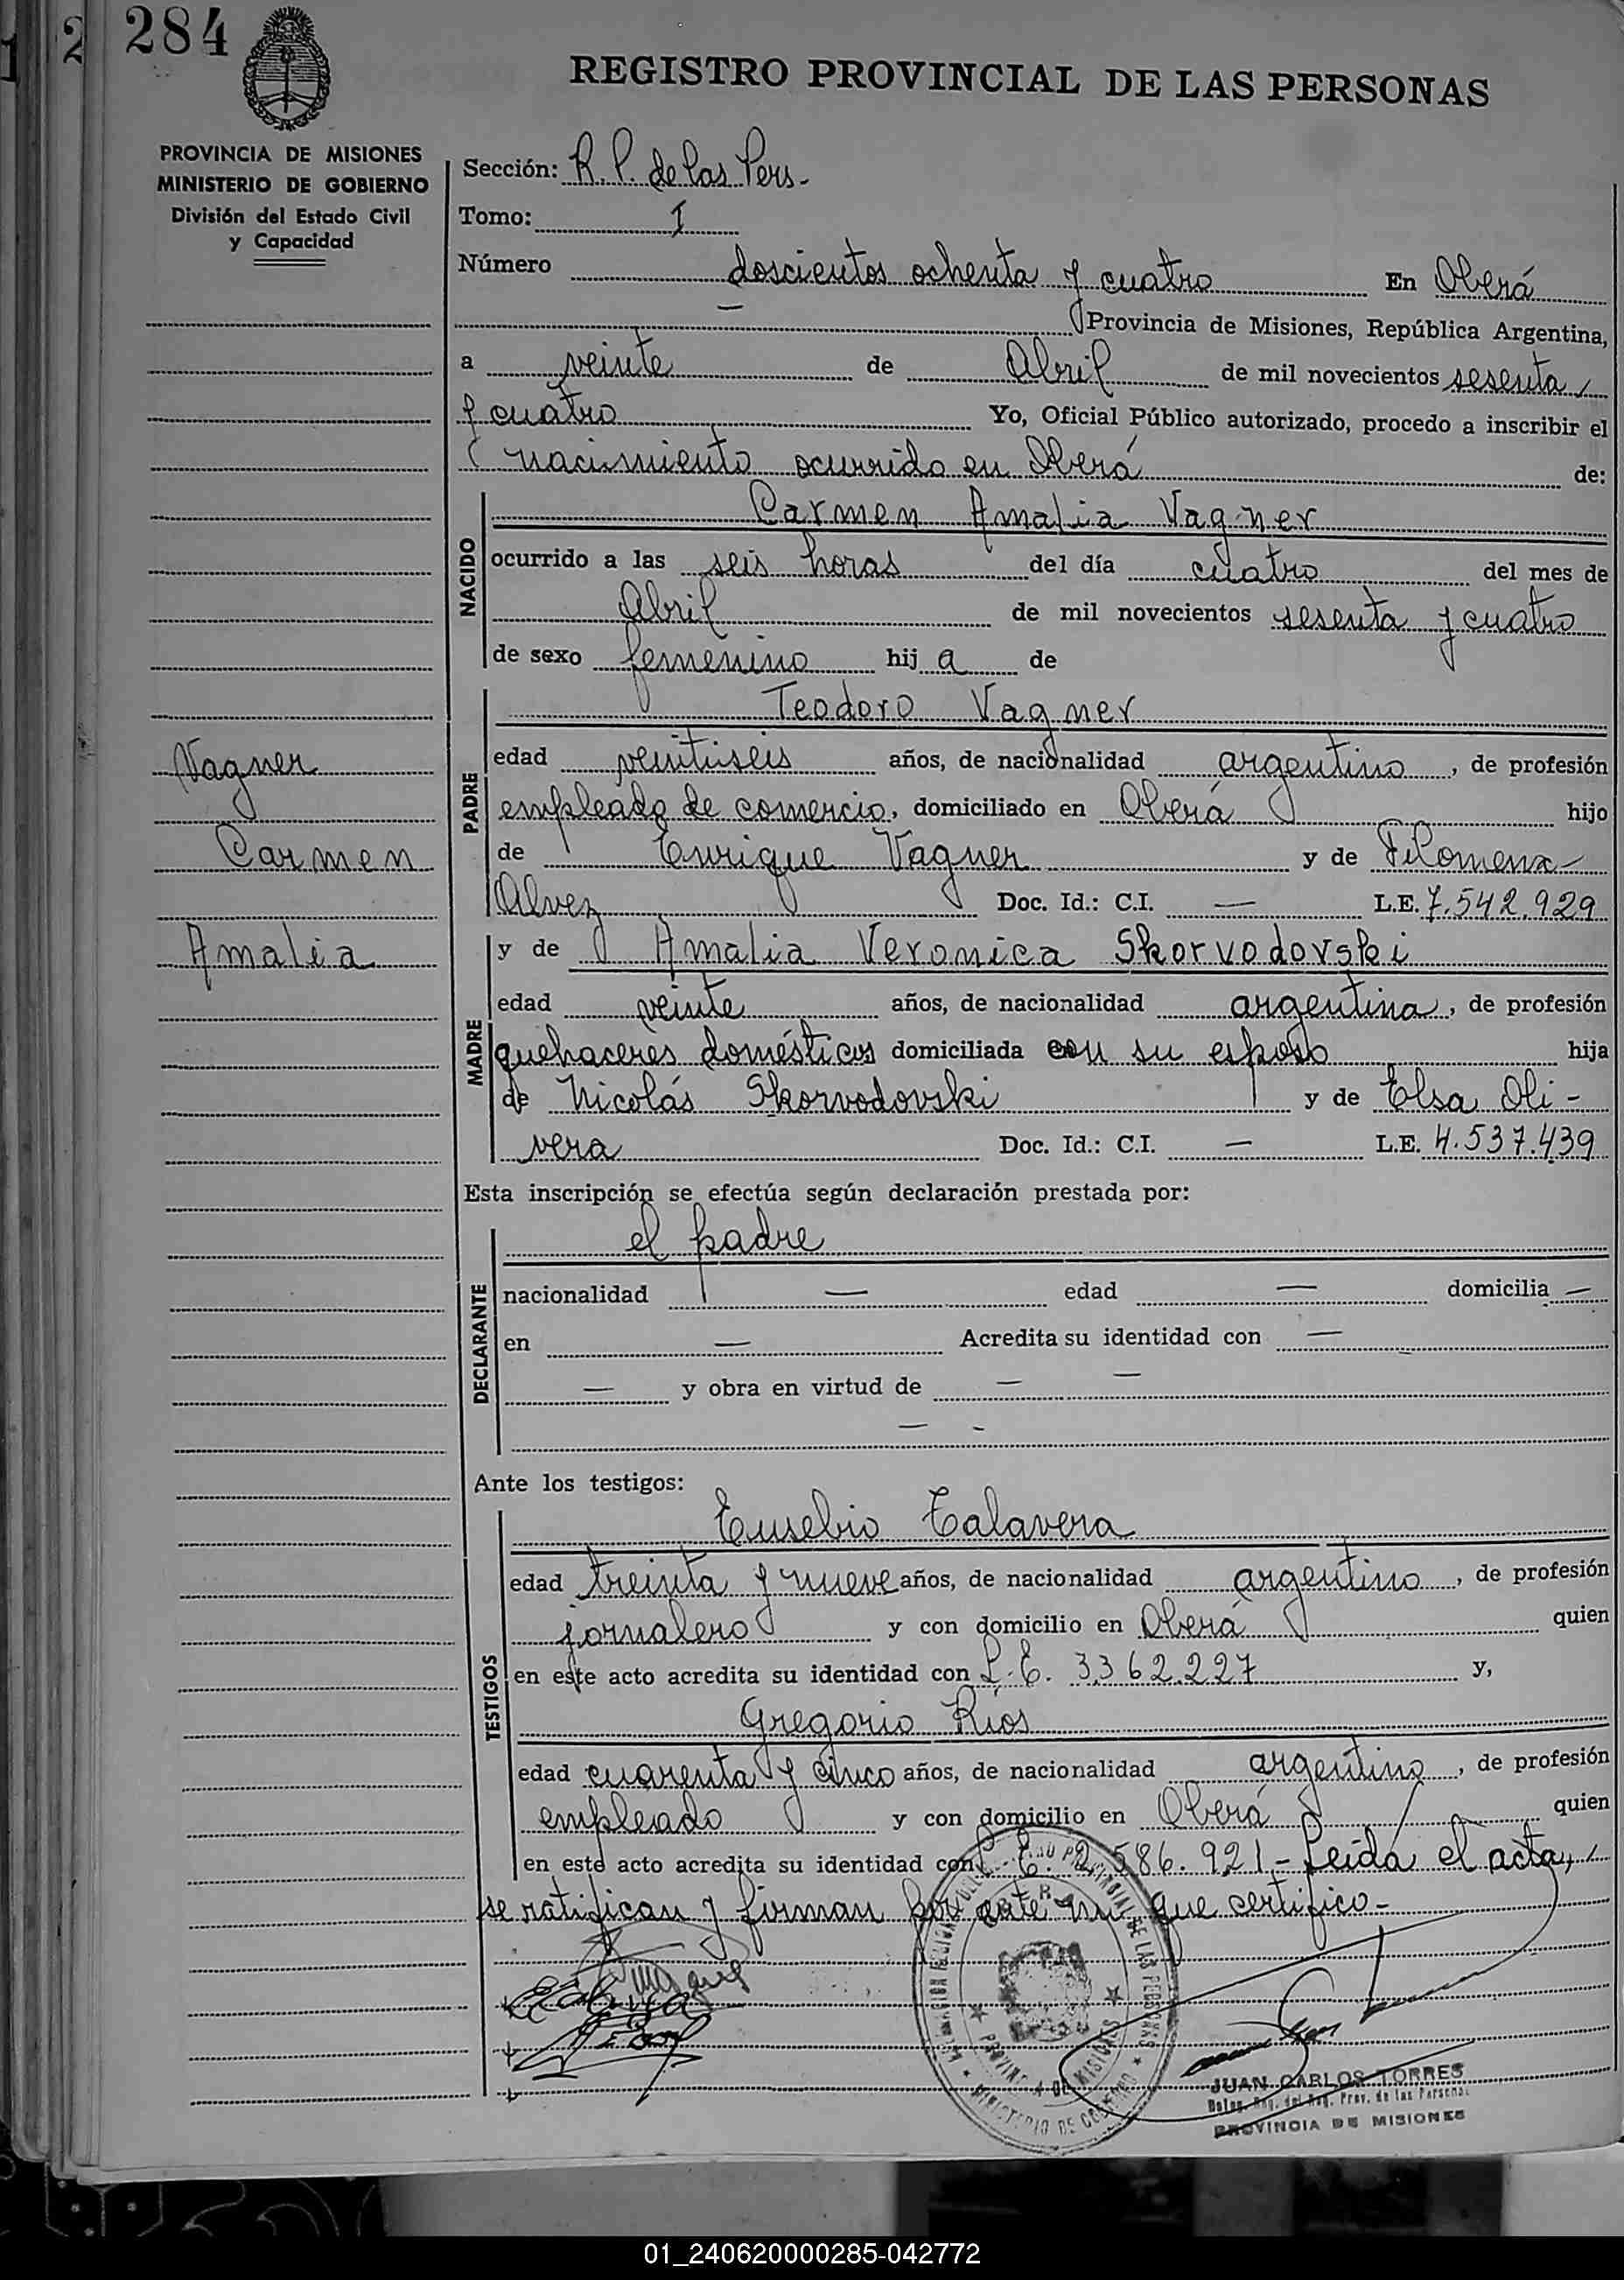 1 2 284
REGISTRO PROVINCIAL DE LAS PERSONAS
PROVINCIA DE MISIONES
MINISTERIO DE GOBIERNO
División del Estado Civil
y Capacidad
Sección: R. P. de las Pers-
Tomo: I
Número doscientos ochenta y cuatro En Oberá
Provincia de Misiones, República Argentina,
a veinte de Abril de mil novecientos sesenta
y cuatro Yo, Oficial Público autorizado, procedo a inscribir el
nacimiento ocurrido en Oberá de:
NACIDO
Carmen Amalia Vagner
ocurrido a las seis horas del día cuatro del mes de
Abril de mil novecientos sesenta y cuatro
de sexo femenino hij a de
PADRE
Teodoro Vagner
Vagner
Carmen
Amalia
edad veintiseis años, de nacionalidad argentino, de profesión
empleado de comercio, domiciliado en Oberá hijo
de Enrique Vagner y de Filomena
Alvez Doc. Id.: C.I. — L.E. 7.542.929
MADRE
y de Amalia Veronica Skorvodovski
edad veinte años, de nacionalidad argentina, de profesión
quehaceres domésticos domiciliada con su esposo hija
de Nicolás Skorvodovski y de Elsa Oli-
vera Doc. Id.: C.I. — L.E. 4.537.439
Esta inscripción se efectúa según declaración prestada por:
DECLARANTE
el padre
nacionalidad — edad — domicilia —
en — Acredita su identidad con —
— y obra en virtud de — —
— -
Ante los testigos:
TESTIGOS
Eusebio Talavera
edad treinta y nueve años, de nacionalidad argentino, de profesión
jornalero y con domicilio en Oberá quien
en este acto acredita su identidad con L.E. 3.362.227 y,
Gregorio Ríos
edad cuarenta y cinco años, de nacionalidad argentino, de profesión
empleado y con domicilio en Oberá quien
en este acto acredita su identidad con L.E. 2.586.921.- Leída el acta,
se ratifican y firman por ante mi que certifico-
PROVINCIAL DE LAS PERSONAS
PROVINCIA DE MISIONES
MINISTERIO DE GOBIERNO
JUAN CARLOS TORRES
Prov. de las Personas
PROVINCIA DE MISIONES
01_240620000285-042772